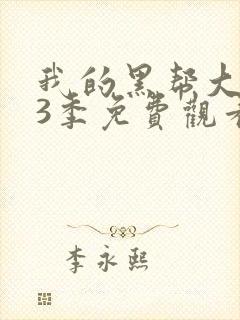 我的黑帮大
3季免費觀看
李永熙